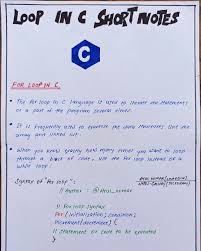 LOOP IN C SHORT NOTES
C
FOR LOOP IN C
The for loop in C language is used to iterate the statements
or a part of the program several times.
It is frequently used to traverse the data structures like the
array and linked list.
When you know exactly how many times you want to loop
through a block of code, use the for loop instead of a
while loop
Syntax of "for loop":
// Author :
// for loop Syntax
For (initialization; condition;
increment/decrement) {
// statement or code to be executed
}